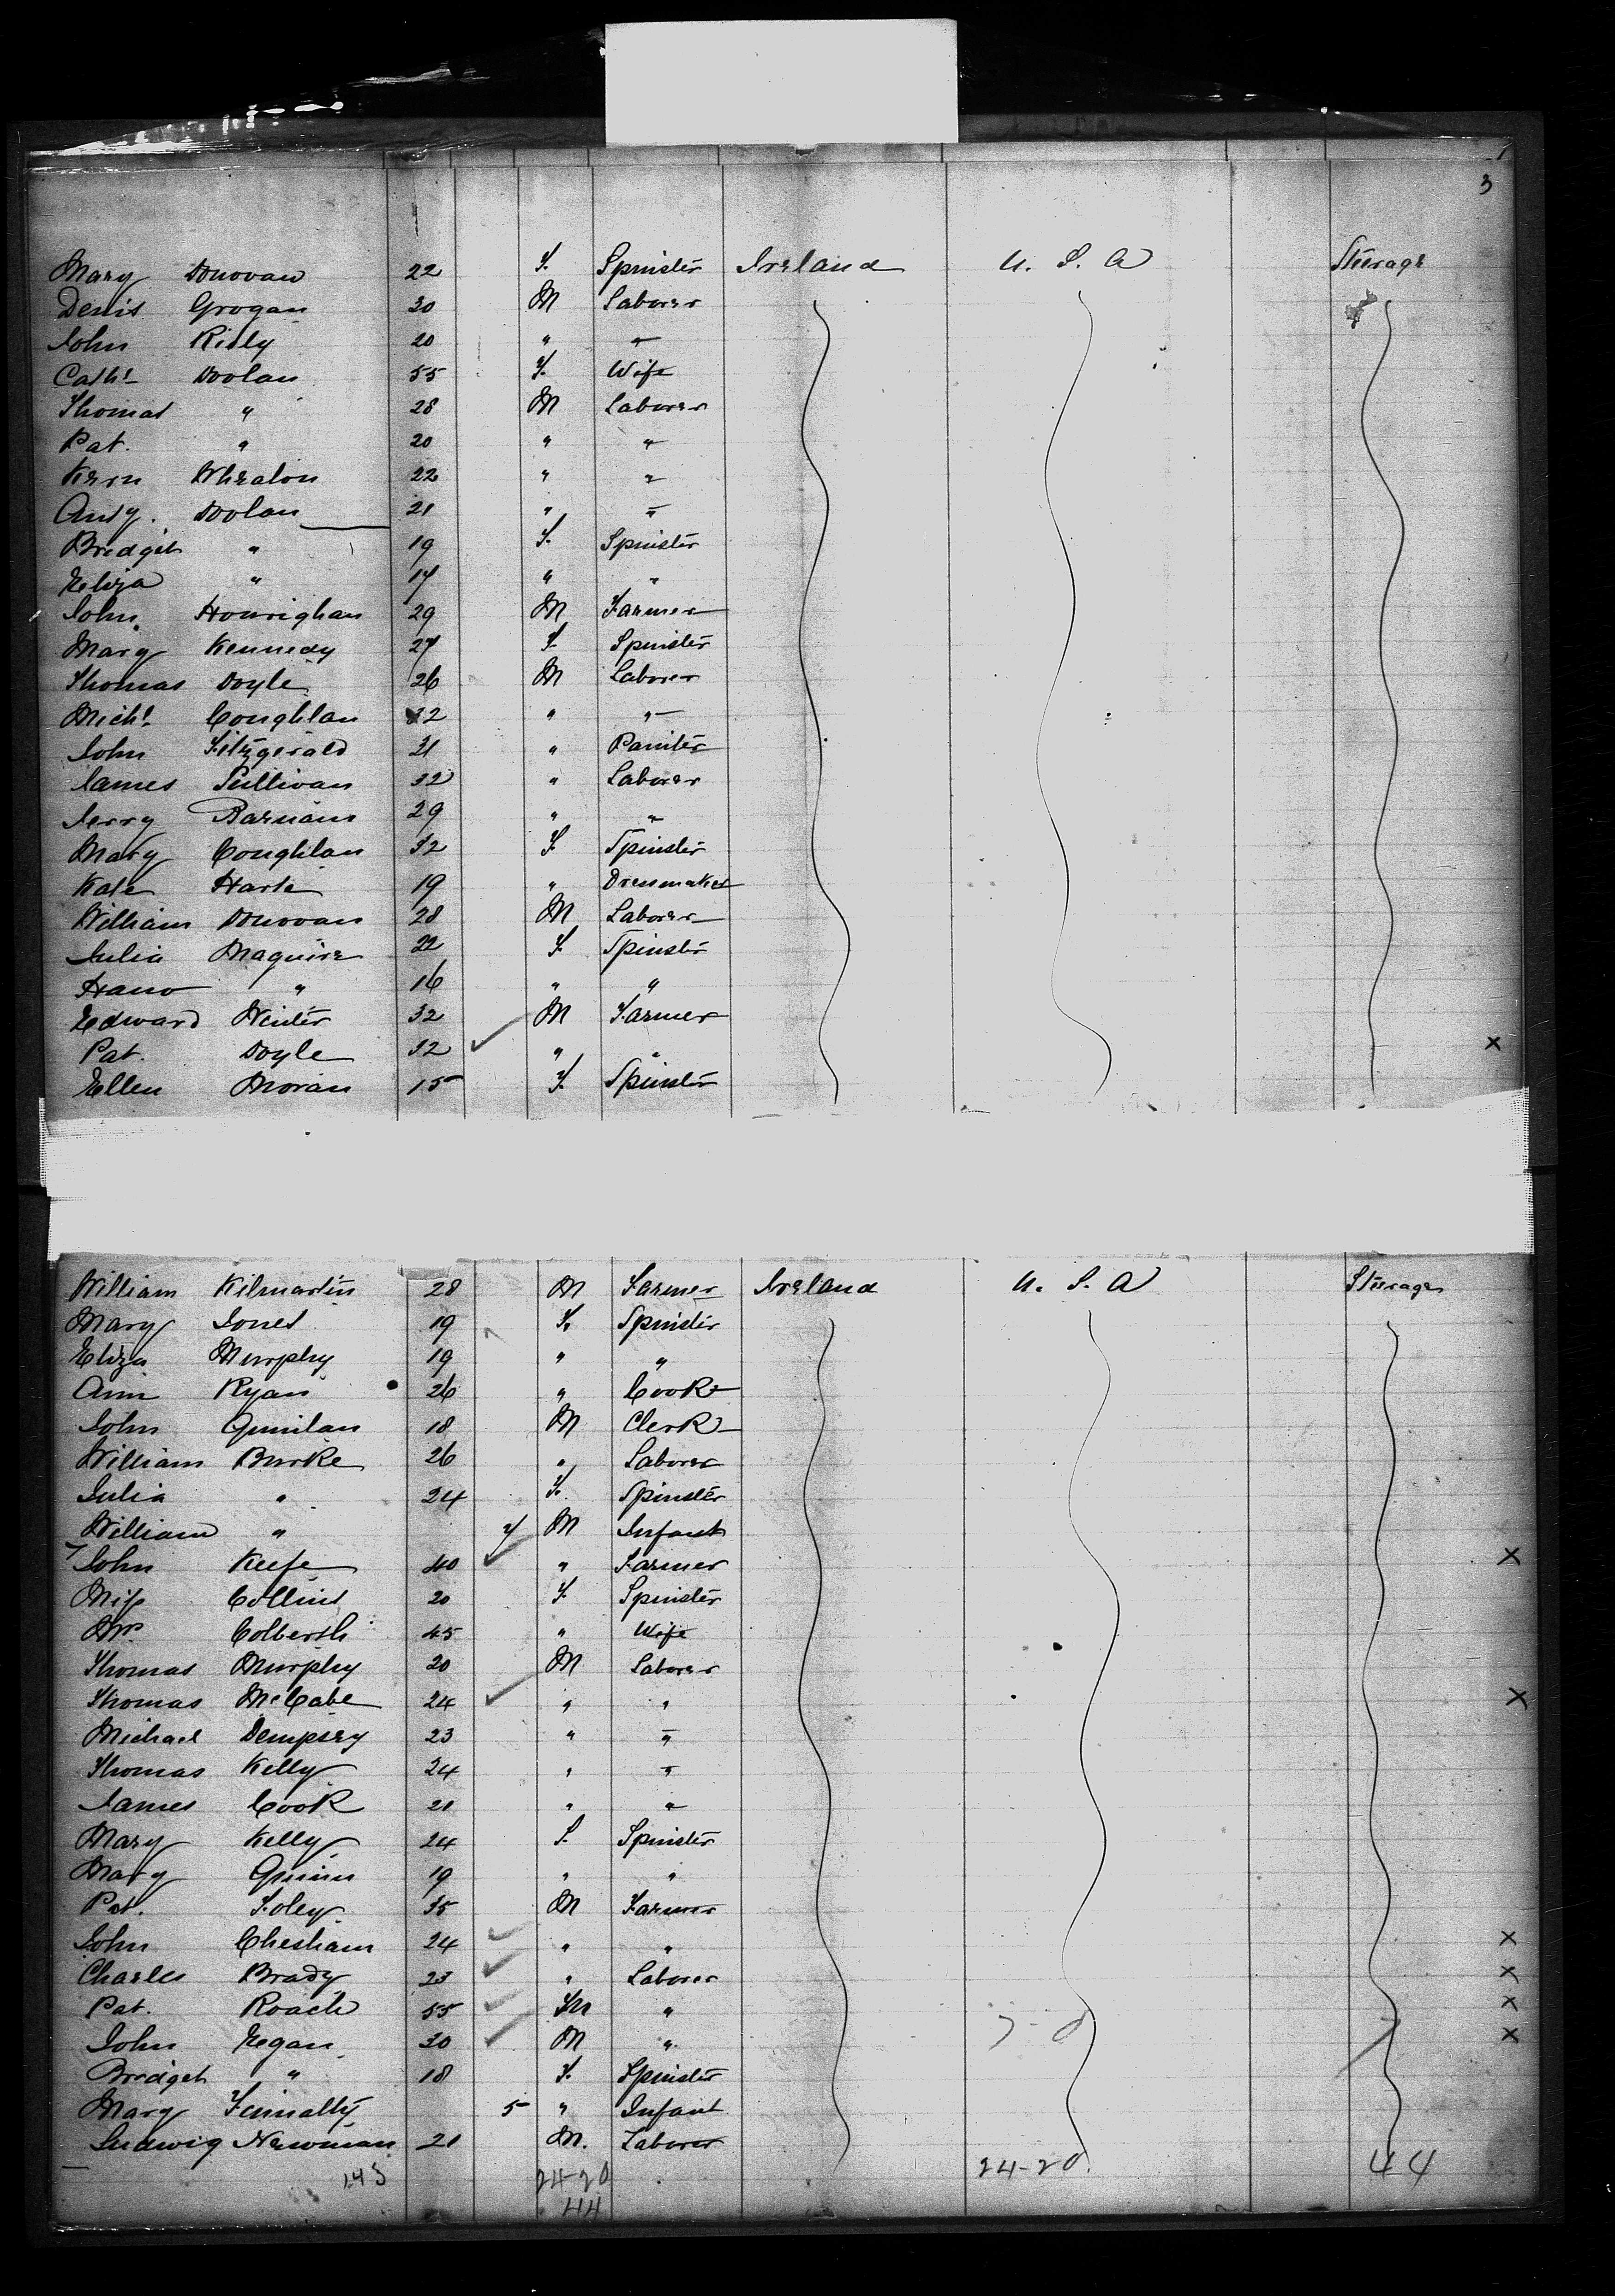 3
Mary Donovan 22 F. Spinster Ireland U. S. A Steerage
Denis Grogan 30 M Laborer
John 20 " "
Cath. Doolan 55 F. Wife
Thomas " 28 M Laborer
Pat. " 20 " "
Kern Whealon 22 " "
Andy. Doolan 21 " "
Bridget " 19 F. Spinster
Eliza " 17 " "
John Hourighan 29 M Farmer
Mary Kennedy 27 F. Spinster
Thomas Doyle 26 M Laborer
Michl. Coughlan 32 " "
John Fitzgerald 31 " Painter
James Sullivan 32 " Laborer
Jerry 29 " "
Mary Coughlan 32 F. Spinster
Kate Harte 19 " Dressmaker
William Donovan 28 M Laborer
Julia Maguire 22 F. Spinster
" 16 " "
Edward Winter 32 M Farmer
Pat. Doyle 32 ✓ " " X
Ellen Moran 15 F. Spinster
William Kilmartin 28 M Farmer Ireland U. S. A Steerage
Mary Jones 19 F. Spinster
Eliza Murphy 19 " "
Ann Ryan 26 " Cook
John Quinlan 18 M Clerk
William Burke 26 " Laborer
Julia " 24 F. Spinster
William " M Infant
John Keefe 40 ✓ " Farmer X
Miss Collins 20 F. Spinster
Mrs. Colbersh 45 " Wife
Thomas Murphy 20 M Laborer
Thomas McCabe 24 ✓ " " X
Michael Dempsey 23 " "
Thomas Kelly 24 " "
James Cook 21 " "
Mary Kelly 24 F. Spinster
Mary Quinn 19 " "
Pat. Foley 35 M Farmer
John Chesham 24 ✓ " " X
Charles Brady 23 ✓ " Laborer X
Pat. Roach 55 ✓ M " X
John Egan 30 ✓ M " X
Bridget " 18 F. Spinster
Mary Finnalty 5 " Infant
Ludwig Newman 21 M. Laborer
143 24-20 24-20 44
44